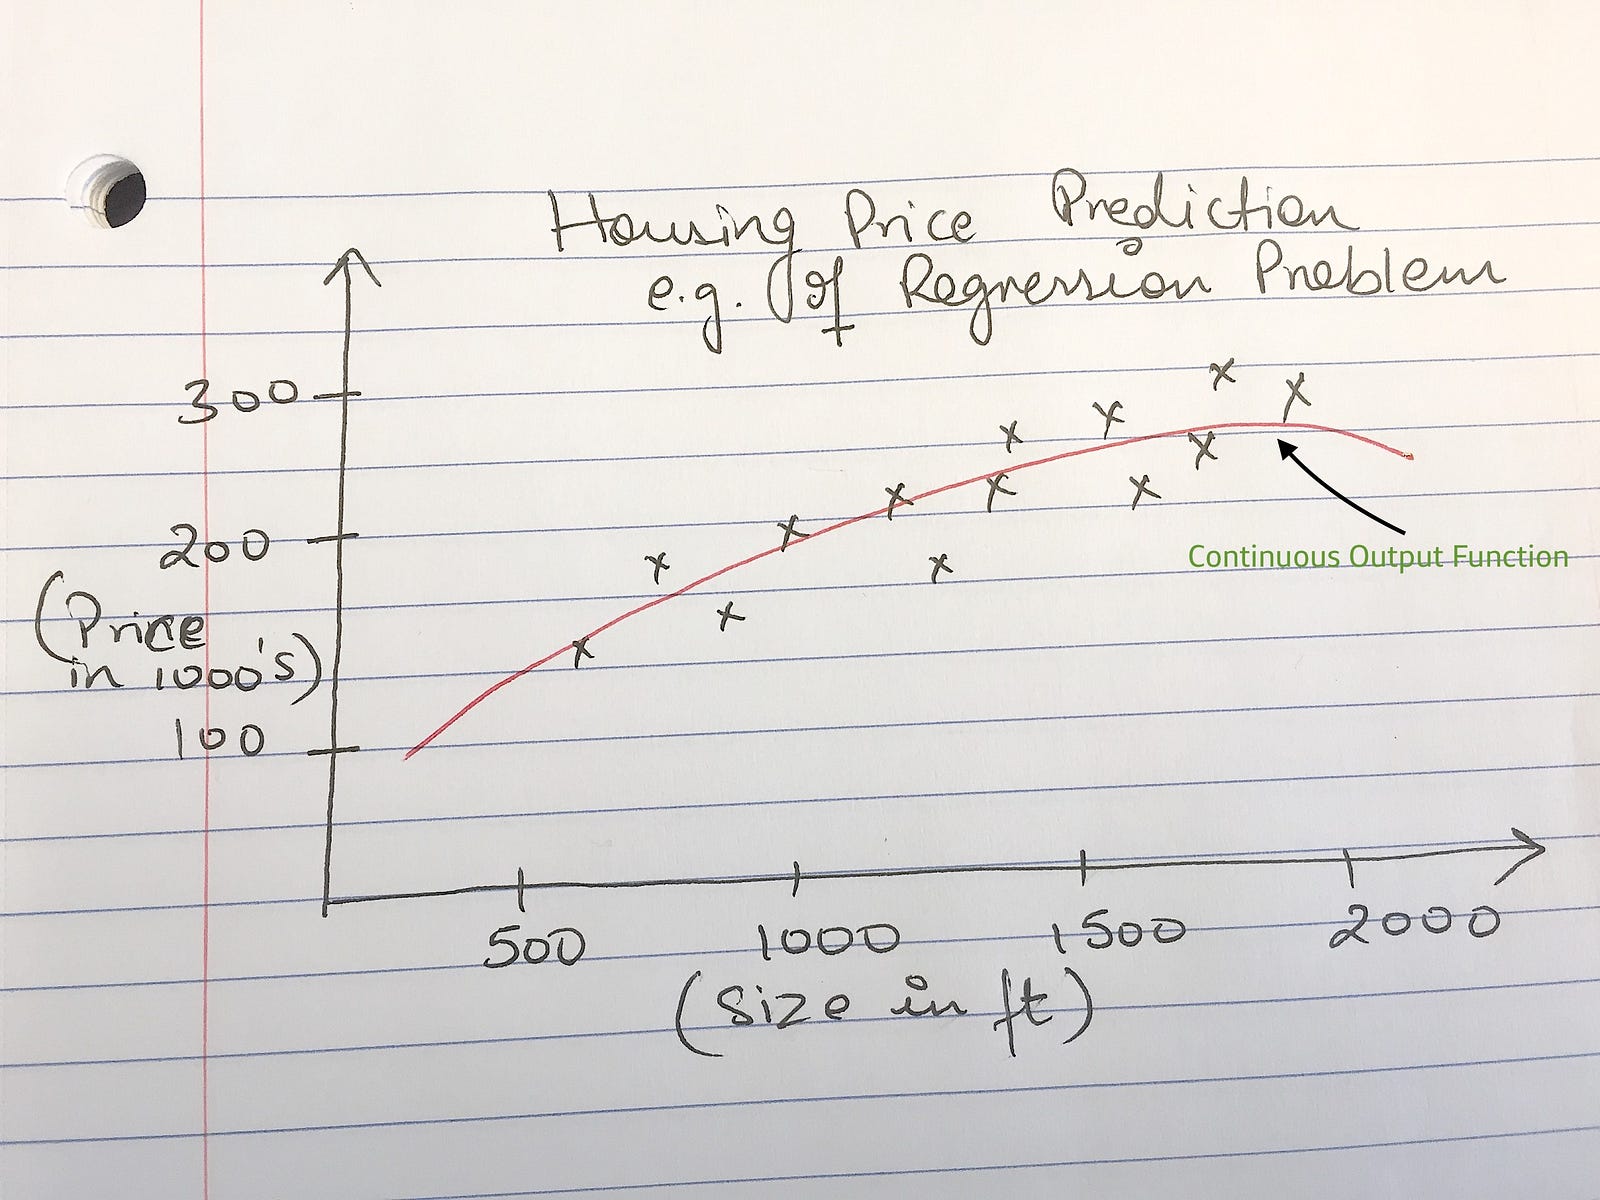 Housing Price Prediction
e.g. of Regression Problem
300
200
(Price
in 1000's)
100
Continuous Output Function
500 1000 1500 2000
(Size in ft)